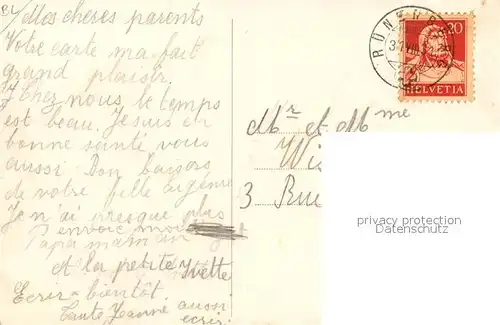 Mes cheres parents
Votre carte ma fait
grand plaisir.
Chez nous, le temps
est beau. Je suis en
bonne santé vous
aussi. Bon baisers
de votre fille eugénie
Je n'ai presque plus
envoie moi
Papa maman
et la petite Yvette
Ecrir bientôt.
Tante Jeanne aussi
ecrir.
RÜN
20
HELVETIA
Mr et Mme
Wi
3 Rue
privacy protection
Datenschutz